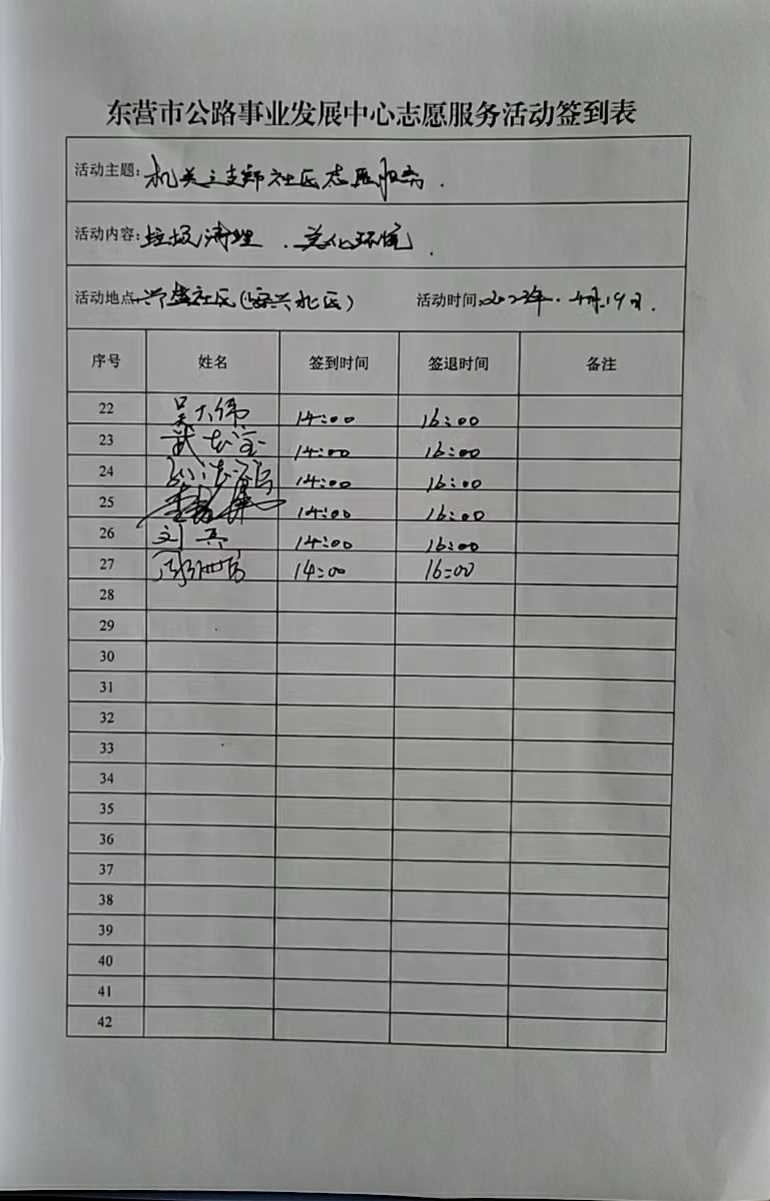 东营市公路事业发展中心志愿服务活动签到表
活动主题:机关三支部社区志愿服务.
活动内容:垃圾清理、美化环境.
活动地点:社区(安兴北区) 活动时间:2023年.4月.19日.
序号 姓名 签到时间 签退时间 备注
22 吴大伟 14:00 16:00
23 武 14:00 16:00
24 14:00 16:00
25 14:00 16:00
26 刘 14:00 16:00
27 14:00 16:00
28
29
30
31
32
33
34
35
36
37
38
39
40
41
42